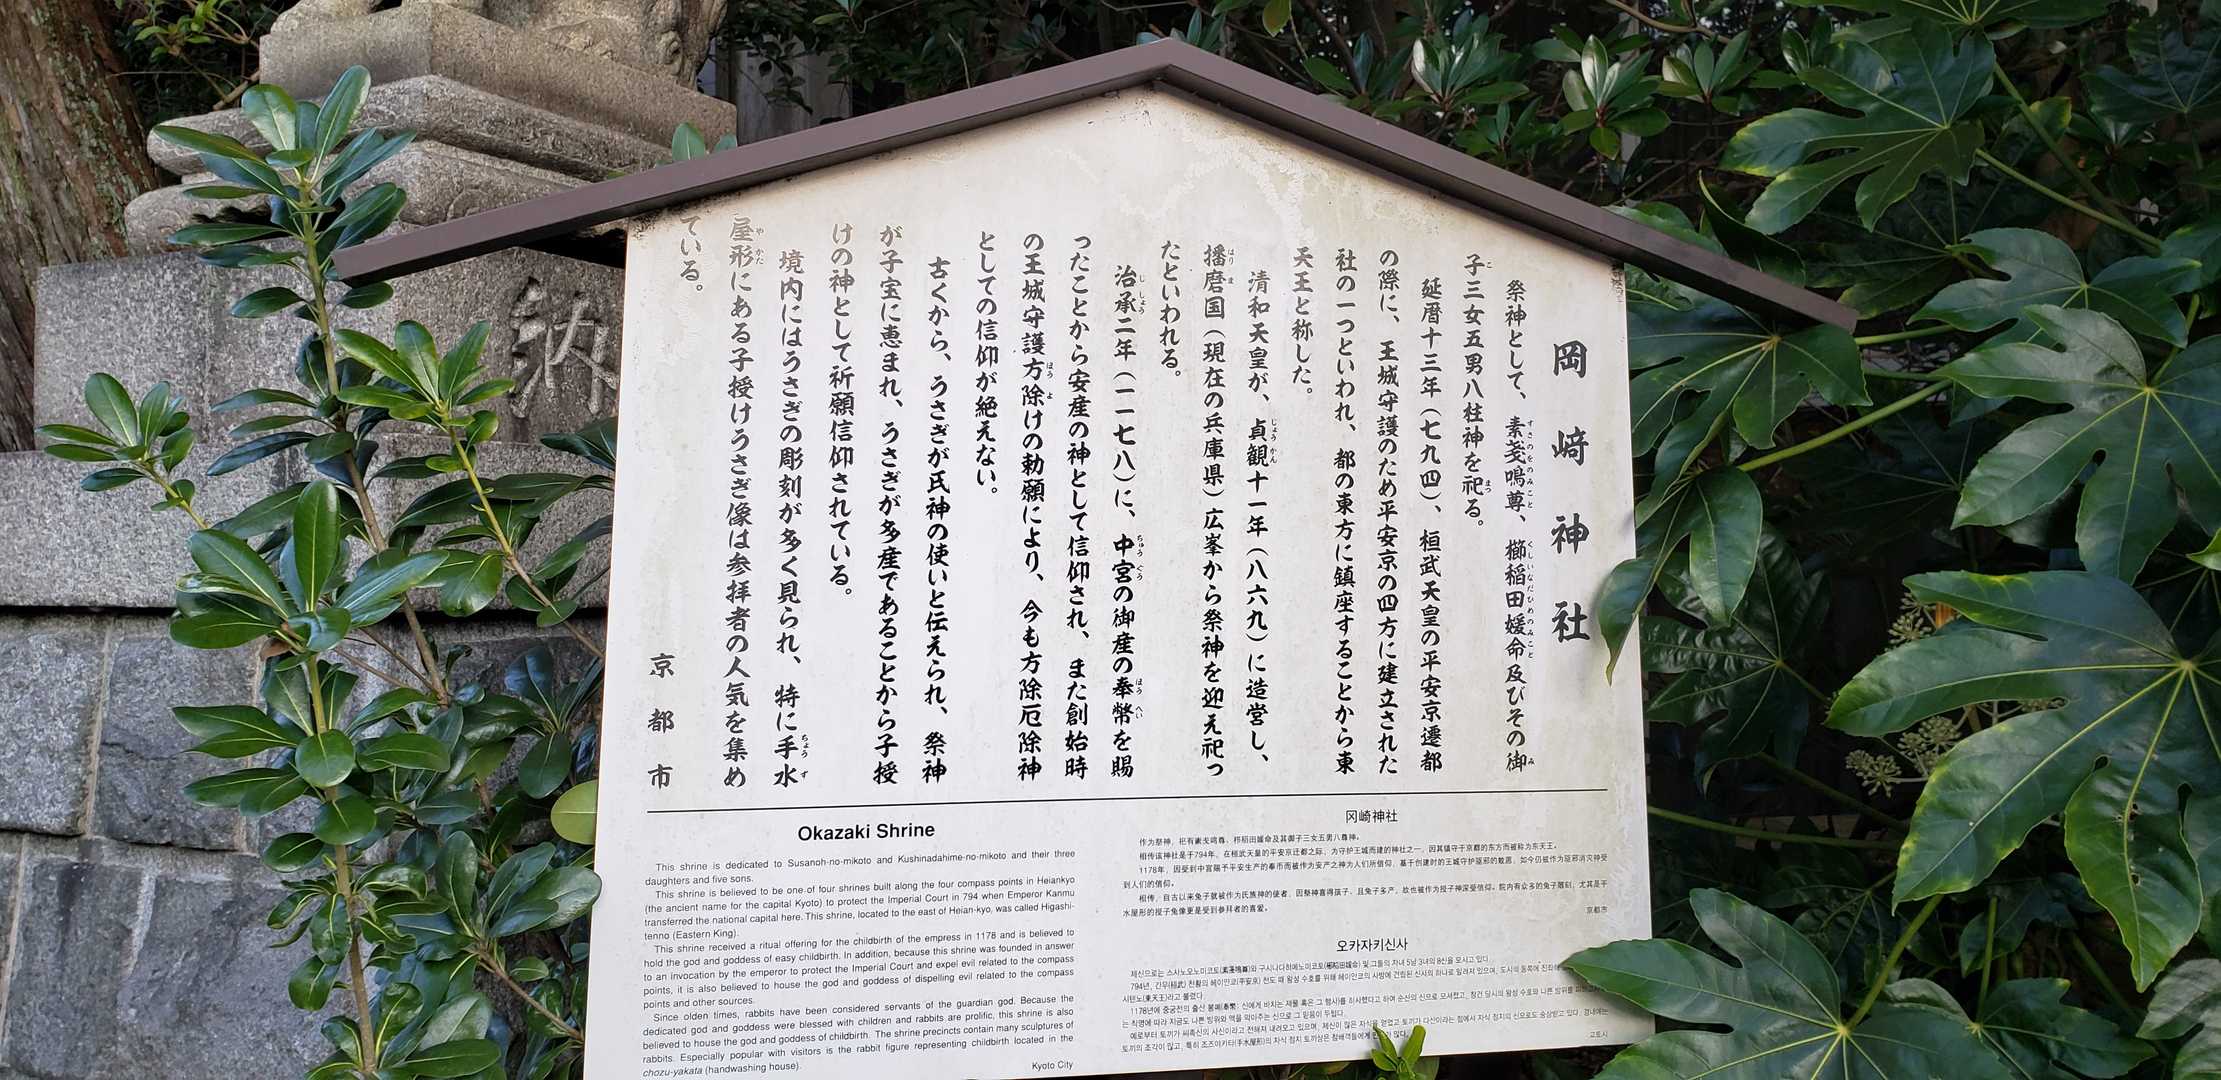 納
岡﨑神社
祭神として、素戔嗚尊、櫛稲田媛命及びその御
子三女五男八柱神を祀る。
延暦十三年(七九四)、桓武天皇の平安京遷都
の際に、王城守護のため平安京の四方に建立された
社の一つといわれ、都の東方に鎮座することから東
天王と称した。
清和天皇が、貞観十一年(八六九)に造営し、
播磨国(現在の兵庫県)広峯から祭神を迎え祀っ
たといわれる。
治承二年(一一七八)に、中宮の御産の奉幣を賜
ったことから安産の神として信仰され、また創始時
の王城守護方除けの勅願により、今も方除厄除神
としての信仰が絶えない。
古くから、うさぎが氏神の使いと伝えられ、祭神
が子宝に恵まれ、うさぎが多産であることから子授
けの神として祈願信仰されている。
境内にはうさぎの彫刻が多く見られ、特に手水
屋形にある子授けうさぎ像は参拝者の人気を集め
ている。
京都市
Okazaki Shrine
This shrine is dedicated to Susanoh-no-mikoto and Kushinadahime-no-mikoto and their three
daughters and five sons.
This shrine is believed to be one of four shrines built along the four compass points in Heiankyo
(the ancient name for the capital Kyoto) to protect the Imperial Court in 794 when Emperor Kanmu
transferred the national capital here. This shrine, located to the east of Heian-kyo, was called Higashi-
tenno (Eastern King).
This shrine received a ritual offering for the childbirth of the empress in 1178 and is believed to
hold the god and goddess of easy childbirth. In addition, because this shrine was founded in answer
to an invocation by the emperor to protect the Imperial Court and expel evil related to the compass
points, it is also believed to house the god and goddess of dispelling evil related to the compass
points and other sources.
Since olden times, rabbits have been considered servants of the guardian god. Because the
dedicated god and goddess were blessed with children and rabbits are prolific, this shrine is also
believed to house the god and goddess of childbirth. The shrine precincts contain many sculptures of
rabbits. Especially popular with visitors is the rabbit figure representing childbirth located in the
chozu-yakata (handwashing house).
Kyoto City
冈崎神社
作为祭神，祀有素戋鸣尊、栉稻田媛命及其御子三女五男八尊神。
相传该神社是于794年，在桓武天皇的平安京迁都之际，为守护王城而建的神社之一，因其镇守于京都的东方而被称为东天王。
1178年，因受到中宫赐予平安生产的奉币而被作为安产之神为人们所信仰，基于创建时的王城守护驱邪的敕愿，如今仍被作为驱邪消灾神受
到人们的信仰。
相传，自古以来兔子就被作为氏族神的使者，因祭神喜得孩子、且兔子多产，故也被作为授子神深受信仰。院内有众多的兔子雕刻，尤其是手
水屋形的授子兔像更是受到参拜者的喜爱。
京都市
오카자키신사
제신으로는 스사노오노미코토(素戔嗚尊)와 구시나다히메노미코토(櫛稲田媛命) 및 그들의 자녀 5남 3녀의 8신을 모시고 있다.
794년, 간무(桓武) 천황의 헤이안쿄(平安京) 천도 때 왕성 수호를 위해 헤이안쿄의 사방에 건립된 신사의 하나로 알려져 있으며, 도시의 동쪽에 진좌해
시텐노(東天王)라고 불렸다.
1178년에 중궁전의 출산 봉폐(奉幣: 신에게 바치는 재물 혹은 그 행사)를 하사했다고 하여 순산의 신으로 모셔졌고, 창건 당시의 왕성 수호와 나쁜 방위를
는 칙명에 따라 지금도 나쁜 방위와 액을 막아주는 신으로 그 믿음이 두텁다.
예로부터 토끼가 씨족신의 사신이라고 전해져 내려오고 있으며, 제신이 많은 자식을 얻었고 토끼가 다산이라는 점에서 자식 점지의 신으로도 숭상받고 있다. 경내에는
토끼의 조각이 많고, 특히 조즈야카타(手水屋形)의 자식 점지 토끼상은 참배객들에게 많다.
교토시